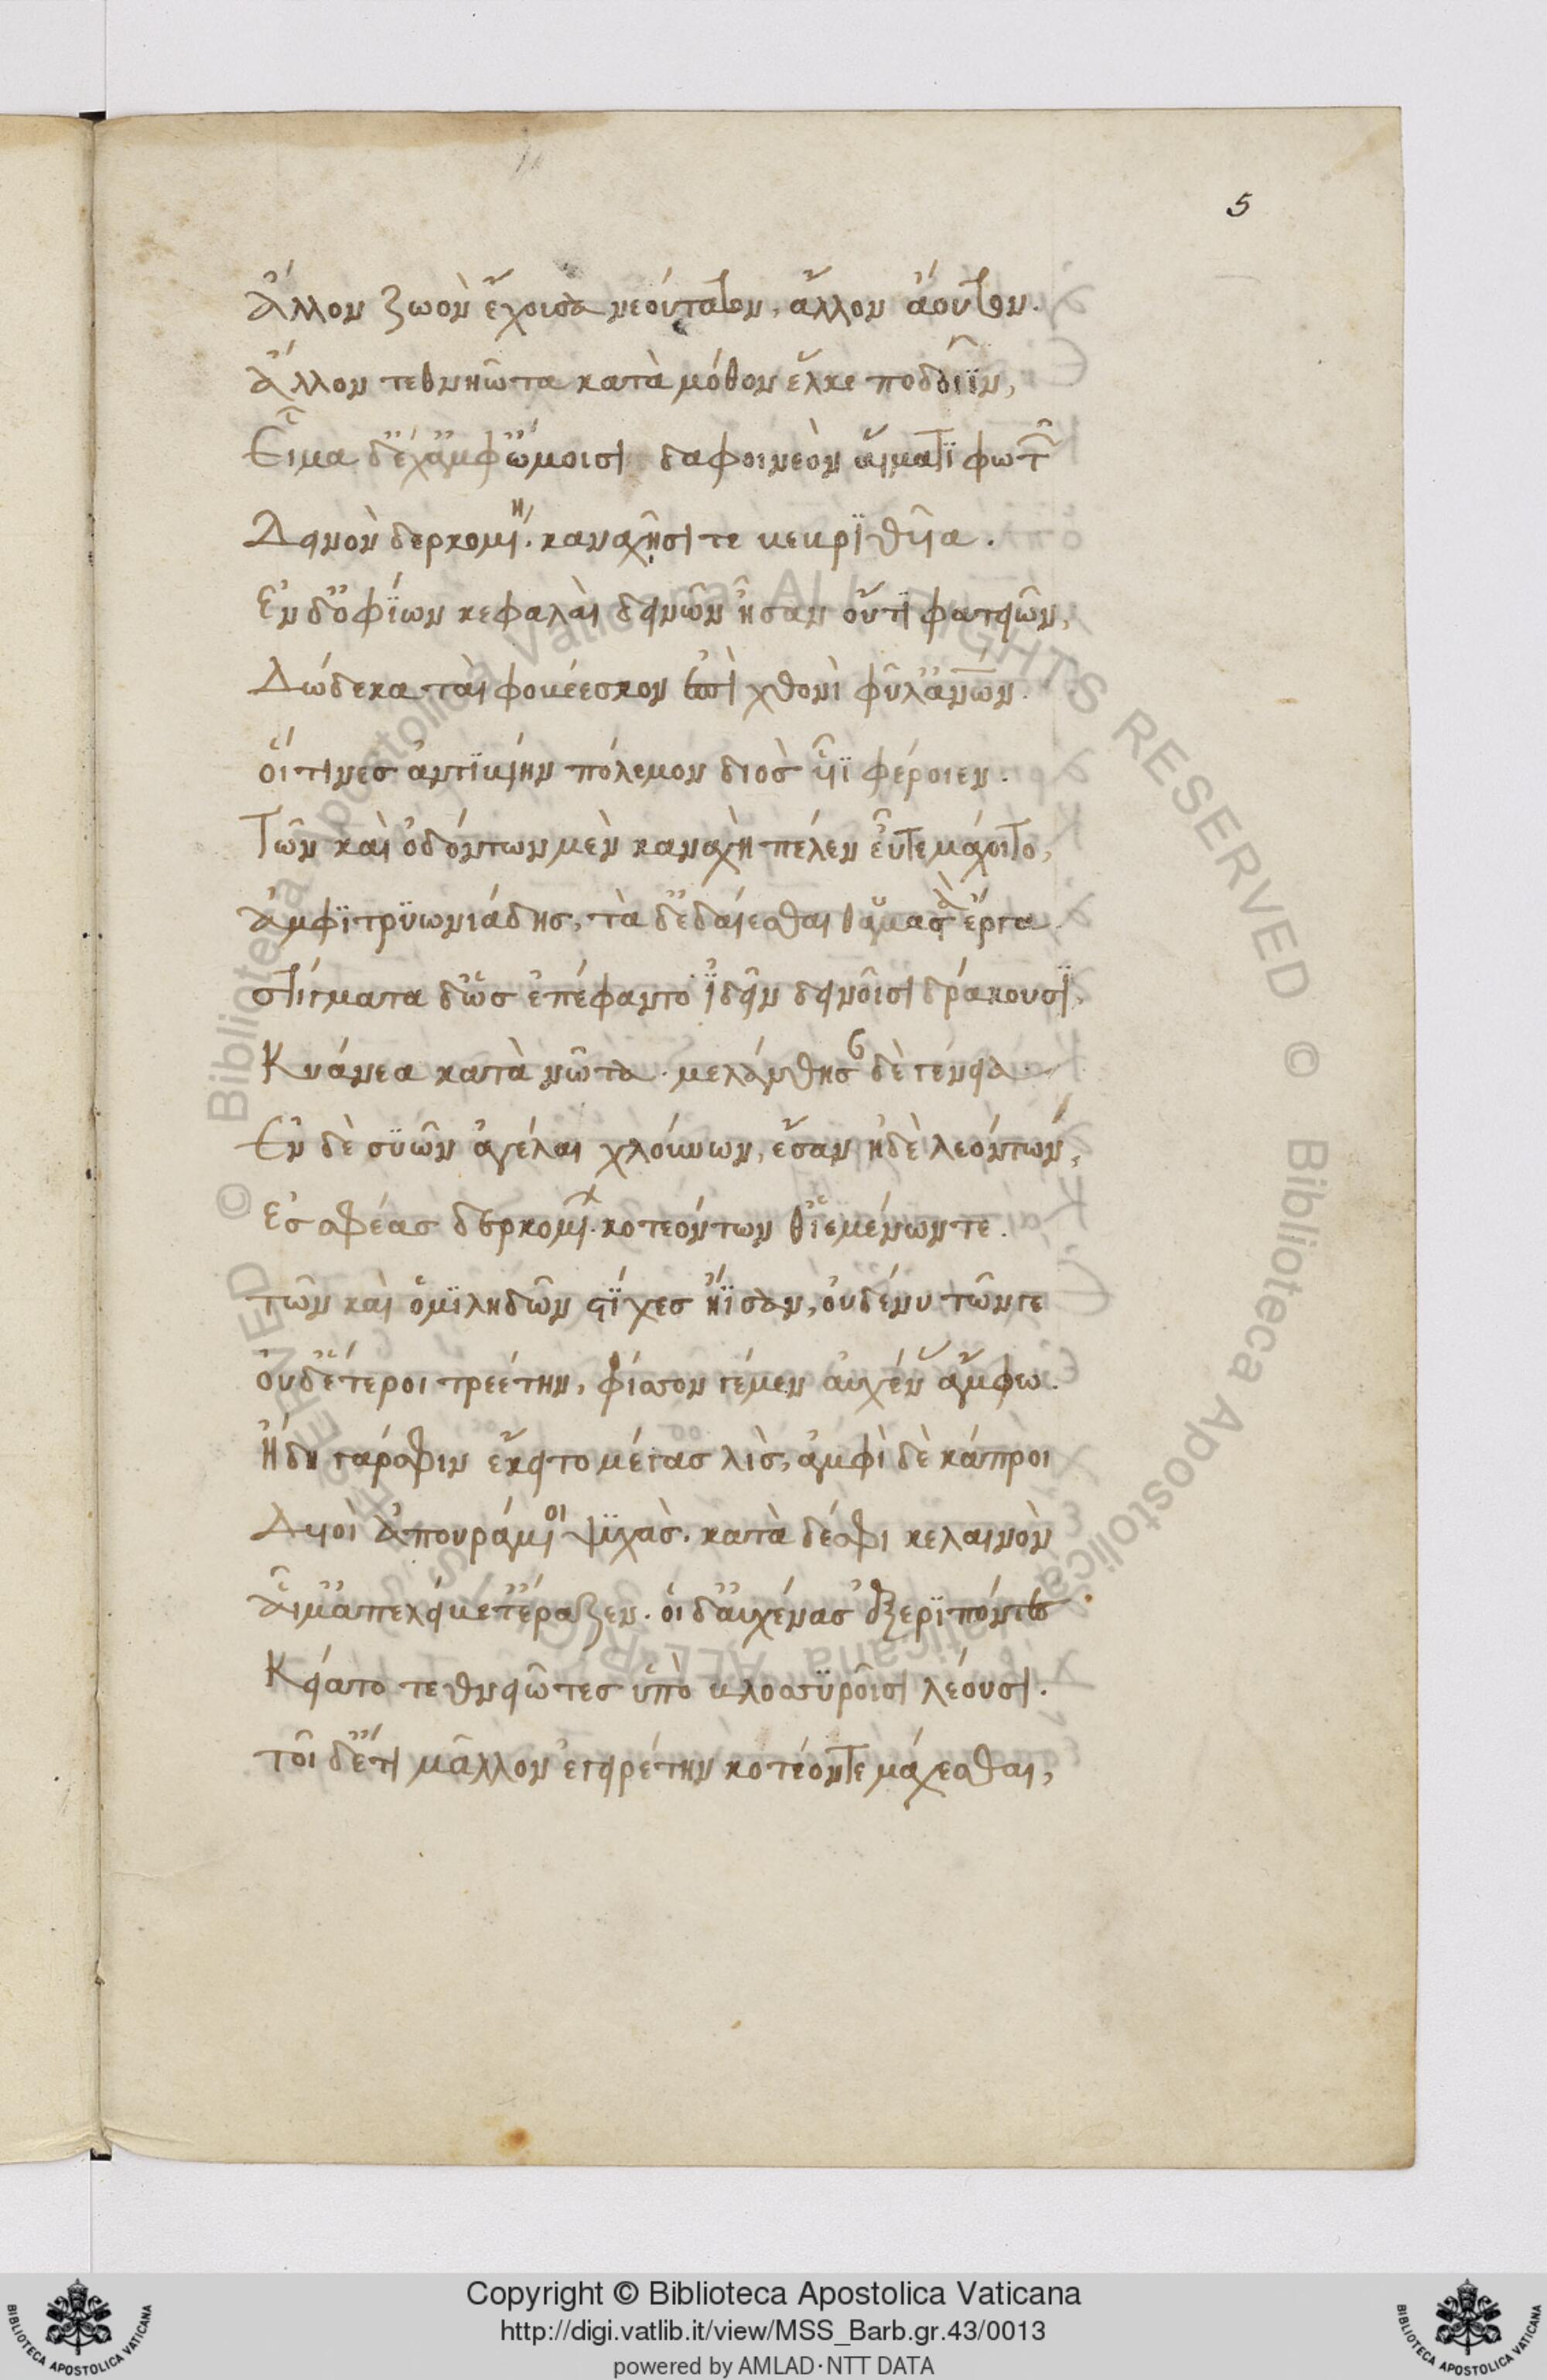 5
Ἄλλον ζωὸν ἔχουσα νεούτατον, ἄλλον ἄουτον.
Ἄλλον τεθνηῶτα κατὰ μόθον ἕλκε ποδοῖϊν,
Εἷμα δ' ἔχ' ἀμφ' ὤμοισι δαφοινεὸν αἵματϊ φωτῶν
Δεινὸν δερκομένη. καναχῆσί τε
Ἐν δ' ὀφΐων κεφαλαὶ δεινῶν ἦσαν οὔτϊ φατειῶν,
Δώδεκα ταὶ φοβέεσκον ἐπὶ χθονὶ φῦλ' ἀνθρώπων.
οἵτινες ἀντϊβίην πόλεμον διὸς υἷϊ φέροιεν.
Τῶν καὶ ὀδόντων μὲν καναχὴ πέλεν εὖτε μάχοιτο,
Ἀμφϊτρϋωνιάδης, τὰ δ' ἐδαίετο θαυμαστὰ ἔργα
στίγματα δ' ὣς ἐπέφαντο ἰδεῖν δεινοῖσι δράκουσϊ,
Κυάνεα κατὰ νῶτα. μελάνθησαν δὲ γένεια
Ἐν δὲ σϋῶν ἀγέλαι χλούνων, ἔσαν ἠδὲ λεόντων,
Ἐς σφέας δερκομένων κοτεόντων θ' ἱεμένων τε.
τῶν καὶ ὁμϊληδῶν στΐχες ἤϊσαν, οὐδέ νυ τῶν γε
οὐδ' ἕτεροι τρεέτην, φρίσσον γέ μεν αὐχέν' ἄμφω.
Ἤδη γάρ σφιν ἔκειτο μέγας λὶς, ἀμφὶ δὲ κάπροι
Δοιοὶ ἀπουράμενοι ψϋχάς. κατὰ δέ σφι κελαινὸν
Αἷμ' ἀπελείβετ' ἔραζεν. οἱ δ' αὐχένας ἐξερϊπόντες
Κείατο τεθνειῶτες ὑπὸ βλοσϋροῖσι λέουσι.
τοὶ δ' ἔτι μᾶλλον ἐγειρέτην κοτέοντε μάχεσθαι,
© Biblioteca Apostolica Vaticana ALL RIGHTS RESERVED
Copyright © Biblioteca Apostolica Vaticana
http://digi.vatlib.it/view/MSS_Barb.gr.43/0013
powered by AMLAD·NTT DATA
BIBLIOTECA APOSTOLICA VATICANA
BIBLIOTECA APOSTOLICA VATICANA